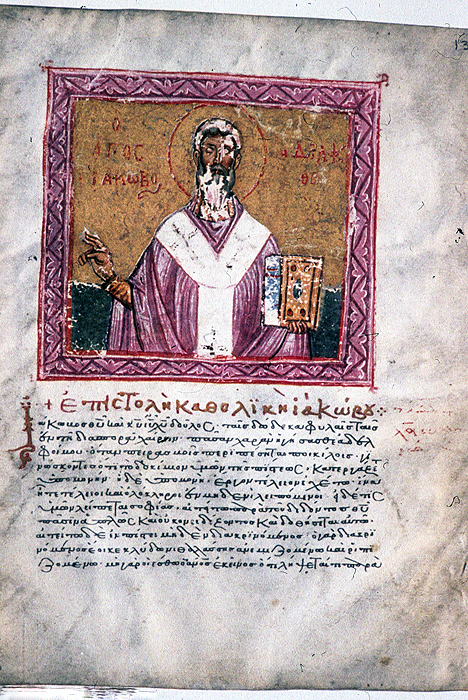 Ο
ΑΓΙΟC
ΙΑΚΩΒΟ
Ο ΑΔΕΛΦΟ
ΘΕ
+ ἘΠΙCΤΟΛῊ ΚΑΘΟΛΙΚῊ ἸΑΚΏΒΟΥ:
Ἰάκωβος θυ καὶ κυ ιυ χυ δοῦλος· ταῖς δώδεκα φυλαῖς ταῖς
ἐν τῆ διασπορᾶ χαίρειν· πᾶσαν χαρὰν ἡγήσασθε ἀδελ
φοί μου· ὅταν πειρασμοῖς περιπέσητε ποικίλοις· γι
νώσκοντες ὅτι τὸ δοκίμιον ὑμῶν τῆς πίστεως· κατεργάζε
ὑπομονήν· ἡ δὲ ὑπομονὴ ἔργον τέλειον ἐχέτω· ἵνα
ἦτε τέλειοι καὶ ὁλόκληροι ἐν μηδενὶ λειπόμενοι· εἰ δέ τις
ὑμῶν λείπεται σοφίας· αἰτείτω παρὰ τοῦ διδόντος θυ
πᾶσιν ἁπλῶς καὶ οὐκ ὀνειδίζοντος καὶ δοθήσεται αὐτῶ·
αἰτείτω δὲ ἐν πίστει μηδὲν διακρινόμενος· ὁ γὰρ διακρι
νόμενος ἔοικε κλύδωνι θαλάσσης ἀνεμιζομένω καὶ ριπι
ζομένω· μὴ γὰρ οἰέσθω ὁ ανος ἐκεῖνος ὅτι λήψεταί τι παρα